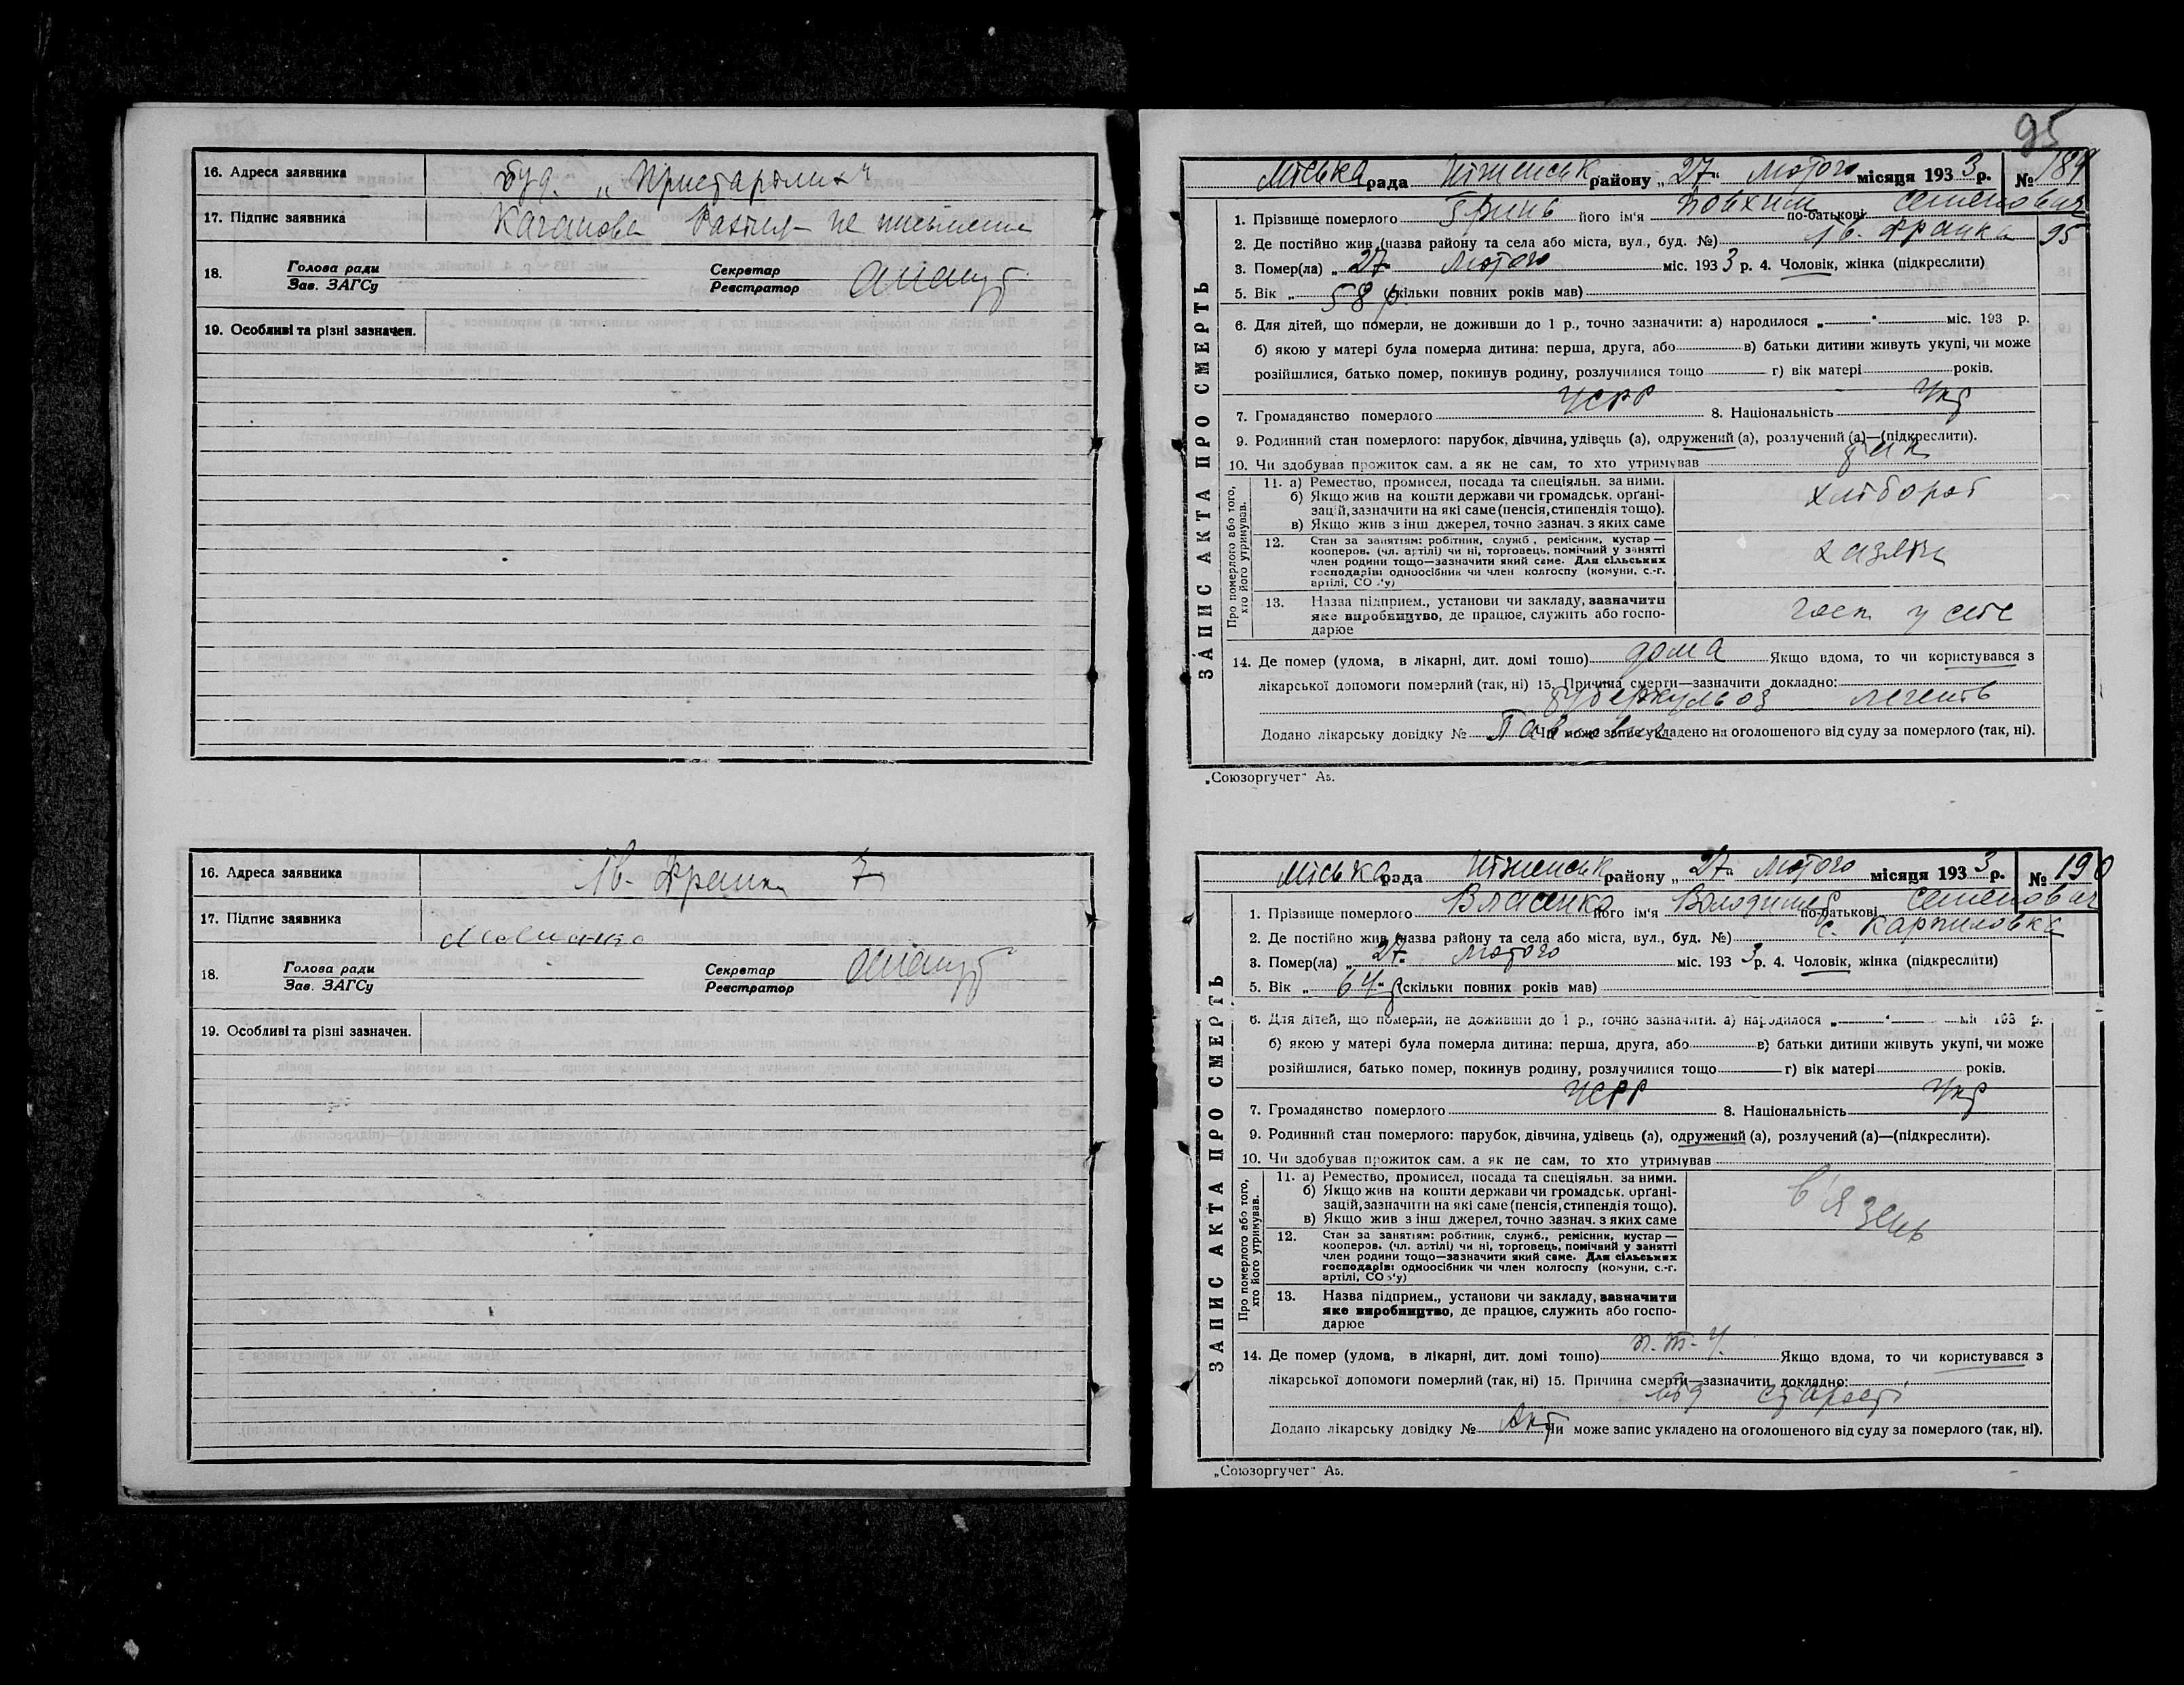 16. Адреса заявника буд. „Пристарілих“
17. Підпис заявника Каганова Рахіля не письменна
18. Голова ради
Зав. ЗАГСу
Секретар
Реєстратор
19. Особливі та різні зазначен.
16. Адреса заявника Ів. Франка 7
17. Підпис заявника
18. Голова ради
Зав. ЗАГСу
Секретар
Реєстратор
19. Особливі та різні зазначен.
95
ЗАПИС АКТА ПРО СМЕРТЬ
Міська рада Ніженськ району „27“ Лютого місяця 1933 р. № 189
1. Прізвище померлого Гринь його ім'я Йовхим по-батькові Семенович
2. Де постійно жив (назва району та села або міста, вул., буд. №) Ів. Франка 95
3. Помер(ла) „27“ Лютого міс. 1933 р. 4. Чоловік, жінка (підкреслити)
5. Вік „58 р. (скільки повних років мав)
6. Для дітей, що померли, не доживши до 1 р., точно зазначити: а) народилося „ “ міс. 193 р.
б) якою у матері була померла дитина: перша, друга, або в) батьки дитини живуть укупі, чи може
розійшлися, батько помер, покинув родину, розлучилися тощо г) вік матері років.
7. Громадянство померлого УСРР 8. Національність Укр
9. Родинний стан померлого: парубок, дівчина, удівець (а), одружений (а), розлучений (а)—(підкреслити).
10. Чи здобував прожиток сам, а як не сам, то хто утримував так
Про померлого або того, хто його утримував.
11. а) Ремество, промисел, посада та спеціяльн. за ними.
б) Якщо жив на кошти держави чи громадськ. органі-
зацій, зазначити на які саме (пенсія, стипендія тощо).
в) Якщо жив з інш джерел, точно зазнач. з яких саме
хлібороб
12. Стан за заняттям: робітник, служб., ремісник, кустар—
кооперов. (чл. артілі) чи ні, торговець, помічний у занятті
член родини тощо—зазначити який саме. Для сільських
господарів: одноосібник чи член колгоспу (комуни, с.-г.
артілі, СОз'у)
хазяїн
13. Назва підприєм., установи чи закладу, зазначити
яке виробництво, де працює, служить або госпо-
дарює
госп у себе
14. Де помер (удома, в лікарні, дит. домі тощо) дома Якщо вдома, то чи користувався з
лікарської допомоги померлий (так, ні) 15. Причина смерти—зазначити докладно:
туберкульоз легенів
Додано лікарську довідку № Чи може запис укладено на оголошеного від суду за померлого (так, ні).
„Союзоргучет“ А5.
ЗАПИС АКТА ПРО СМЕРТЬ
Міська рада Ніженськ району „27“ Лютого місяця 1933 р. № 190
1. Прізвище померлого Власенко його ім'я Володимир по-батькові Семенович
2. Де постійно жив (назва району та села або міста, вул., буд. №) с. Карпиловка
3. Помер(ла) „27“ Лютого міс. 1933 р. 4. Чоловік, жінка (підкреслити)
5. Вік „64“ р (скільки повних років мав)
6. Для дітей, що померли, не доживши до 1 р., точно зазначити: а) народилося „ “ міс 193 р.
б) якою у матері була померла дитина: перша, друга, або в) батьки дитини живуть укупі, чи може
розійшлися, батько помер, покинув родину, розлучилися тощо г) вік матері років.
7. Громадянство померлого УСРР 8. Національність Укр
9. Родинний стан померлого: парубок, дівчина, удівець (а), одружений (а), розлучений (а)—(підкреслити).
10. Чи здобував прожиток сам, а як не сам, то хто утримував
Про померлого або того, хто його утримував.
11. а) Ремество, промисел, посада та спеціяльн. за ними.
б) Якщо жив на кошти держави чи громадськ. органі-
зацій, зазначити на які саме (пенсія, стипендія тощо).
в) Якщо жив з інш джерел, точно зазнач. з яких саме
в'язень
12. Стан за заняттям: робітник, служб., ремісник, кустар—
кооперов. (чл. артілі) чи ні, торговець, помічний у занятті
член родини тощо—зазначити який саме. Для сільських
господарів: одноосібник чи член колгоспу (комуни, с.-г.
артілі, СОз'у)
13. Назва підприєм., установи чи закладу, зазначити
яке виробництво, де працює, служить або госпо-
дарює
14. Де помер (удома, в лікарні, дит. домі тощо) п. т. у. Якщо вдома, то чи користувався з
лікарської допомоги померлий (так, ні) 15. Причина смерти—зазначити докладно:
від старості
Додано лікарську довідку № Акт Чи може запис укладено на оголошеного від суду за померлого (так, ні).
„Союзоргучет“ А5.